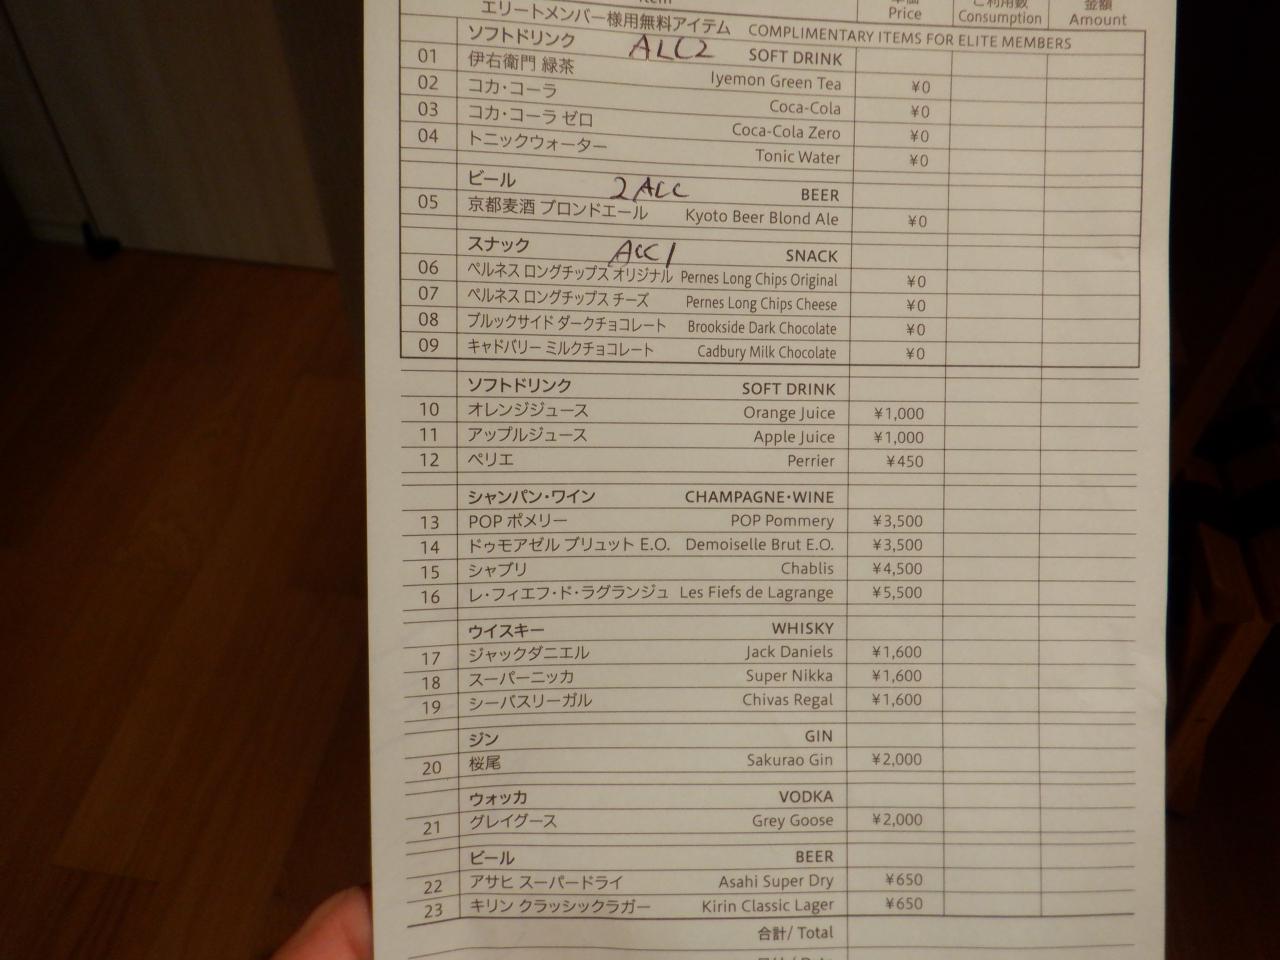 Item 単価 Price ご利用数 Consumption 金額 Amount
エリートメンバー様用無料アイテム COMPLIMENTARY ITEMS FOR ELITE MEMBERS
ソフトドリンク ALC2 SOFT DRINK
01 伊右衛門 緑茶 Iyemon Green Tea ¥0
02 コカ・コーラ Coca-Cola ¥0
03 コカ・コーラ ゼロ Coca-Cola Zero ¥0
04 トニックウォーター Tonic Water ¥0
ビール 2 ACC BEER
05 京都麦酒 ブロンドエール Kyoto Beer Blond Ale ¥0
スナック ACC 1 SNACK
06 ペルネス ロングチップス オリジナル Pernes Long Chips Original ¥0
07 ペルネス ロングチップス チーズ Pernes Long Chips Cheese ¥0
08 ブルックサイド ダークチョコレート Brookside Dark Chocolate ¥0
09 キャドバリー ミルクチョコレート Cadbury Milk Chocolate ¥0
ソフトドリンク SOFT DRINK
10 オレンジジュース Orange Juice ¥1,000
11 アップルジュース Apple Juice ¥1,000
12 ペリエ Perrier ¥450
シャンパン・ワイン CHAMPAGNE・WINE
13 POP ポメリー POP Pommery ¥3,500
14 ドゥモアゼル ブリュット E.O. Demoiselle Brut E.O. ¥3,500
15 シャブリ Chablis ¥4,500
16 レ・フィエフ・ド・ラグランジュ Les Fiefs de Lagrange ¥5,500
ウイスキー WHISKY
17 ジャックダニエル Jack Daniels ¥1,600
18 スーパーニッカ Super Nikka ¥1,600
19 シーバスリーガル Chivas Regal ¥1,600
ジン GIN
20 桜尾 Sakurao Gin ¥2,000
ウォッカ VODKA
21 グレイグース Grey Goose ¥2,000
ビール BEER
22 アサヒ スーパードライ Asahi Super Dry ¥650
23 キリン クラッシックラガー Kirin Classic Lager ¥650
合計/ Total